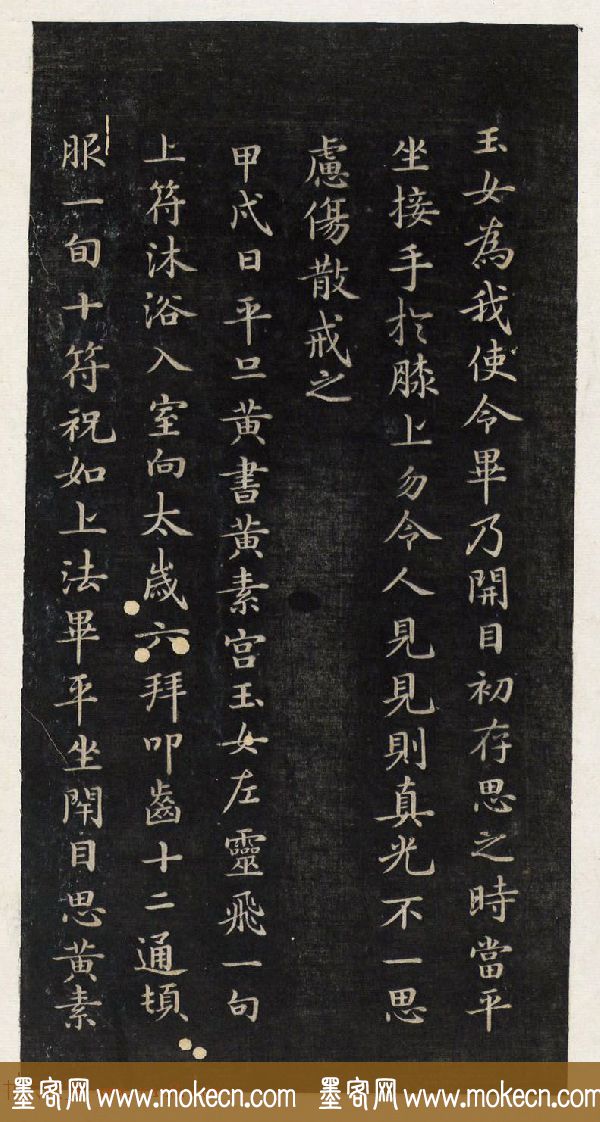 玉女為我使令畢乃開目初存思之時當平
坐接手於膝上勿令人見見則真光不一思
慮傷散戒之
甲戌日平旦黃書黃素宮玉女左靈飛一旬
上符沐浴入室向太歲六拜叩齒十二通頓
服一旬十符祝如上法畢平坐閇目思黃素
墨客网 www.mokecn.com 墨客网 www.mokecn.com